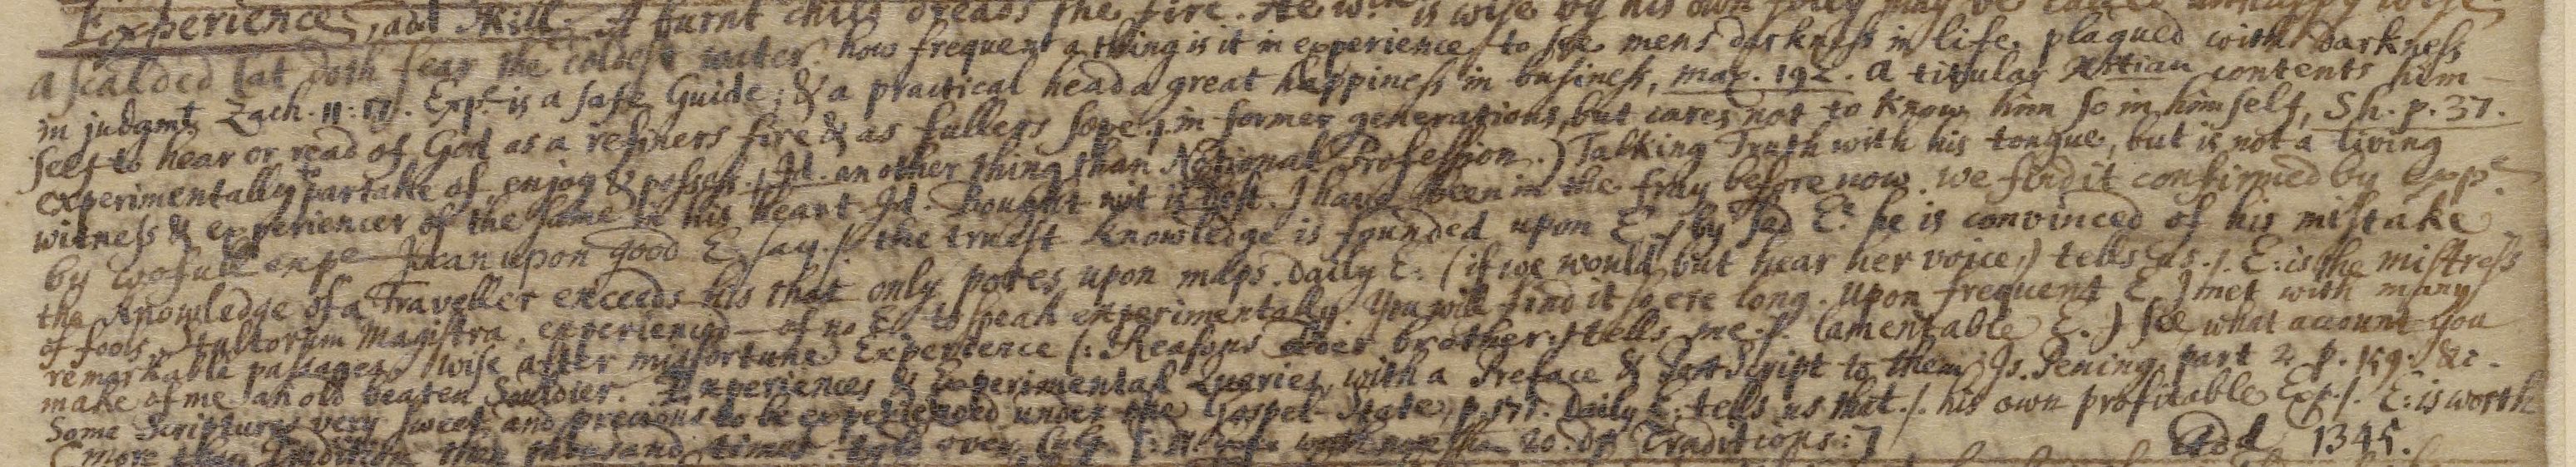 Experience, and Skill. A burnt child dreads the fire. He is wise by his own folly may be called unhappy wise
a scalded Cat doth fear the coldest water. how frequent a thing is it in experience to see mens darkness in life, plagued with darkness
in judgmt Zach. 11: 17. Expe is a safe Guide; & a practical head a great happiness in business, max. 192. a titular Xstian contents him-
self to hear or read of God as a refiners fire & as fullers sope in former generations, but cares not to know him so in himself, Sh. p. 37.
experimentally partake of, enjoy & possess. Id. another thing than Notional Profession.) Talking Truth with his tongue, but is not a living
witness & experiencer of the same in his heart Id. Bought wit is best. I have been in the fray before now. we find it confirmed by expe
by wofull expe I can upon good E. say. the truest knowledge is founded upon E. by sad E. he is convinced of his mistake
the knowledge of a Traveller exceeds his that only pores upon maps. Daily E: (if we would but hear her voice,) tells us. E: is the mistress
of fools. Stultorum Magistra. experienced of no E. to speak experimentally. You will find it so ere long. Upon frequent E. I met with many
remarkable passages. wise after misfortune Experience (: Reasons elder brother:) tells me. lamentable E. see what account you
make of me an old beaten Souldier. Experiences & Experimental Queries, with a Preface & PostScript to them Is. Pening. part 2 p. 159. &c.
Some Scriptures very sweet and precious to be experienced under the Gospel-State, p. 171. Daily E: tells us that. his own profitable Exp. E: is worth
more than Tradition then thousand times told over, 20. of Traditions:] Add 1345.